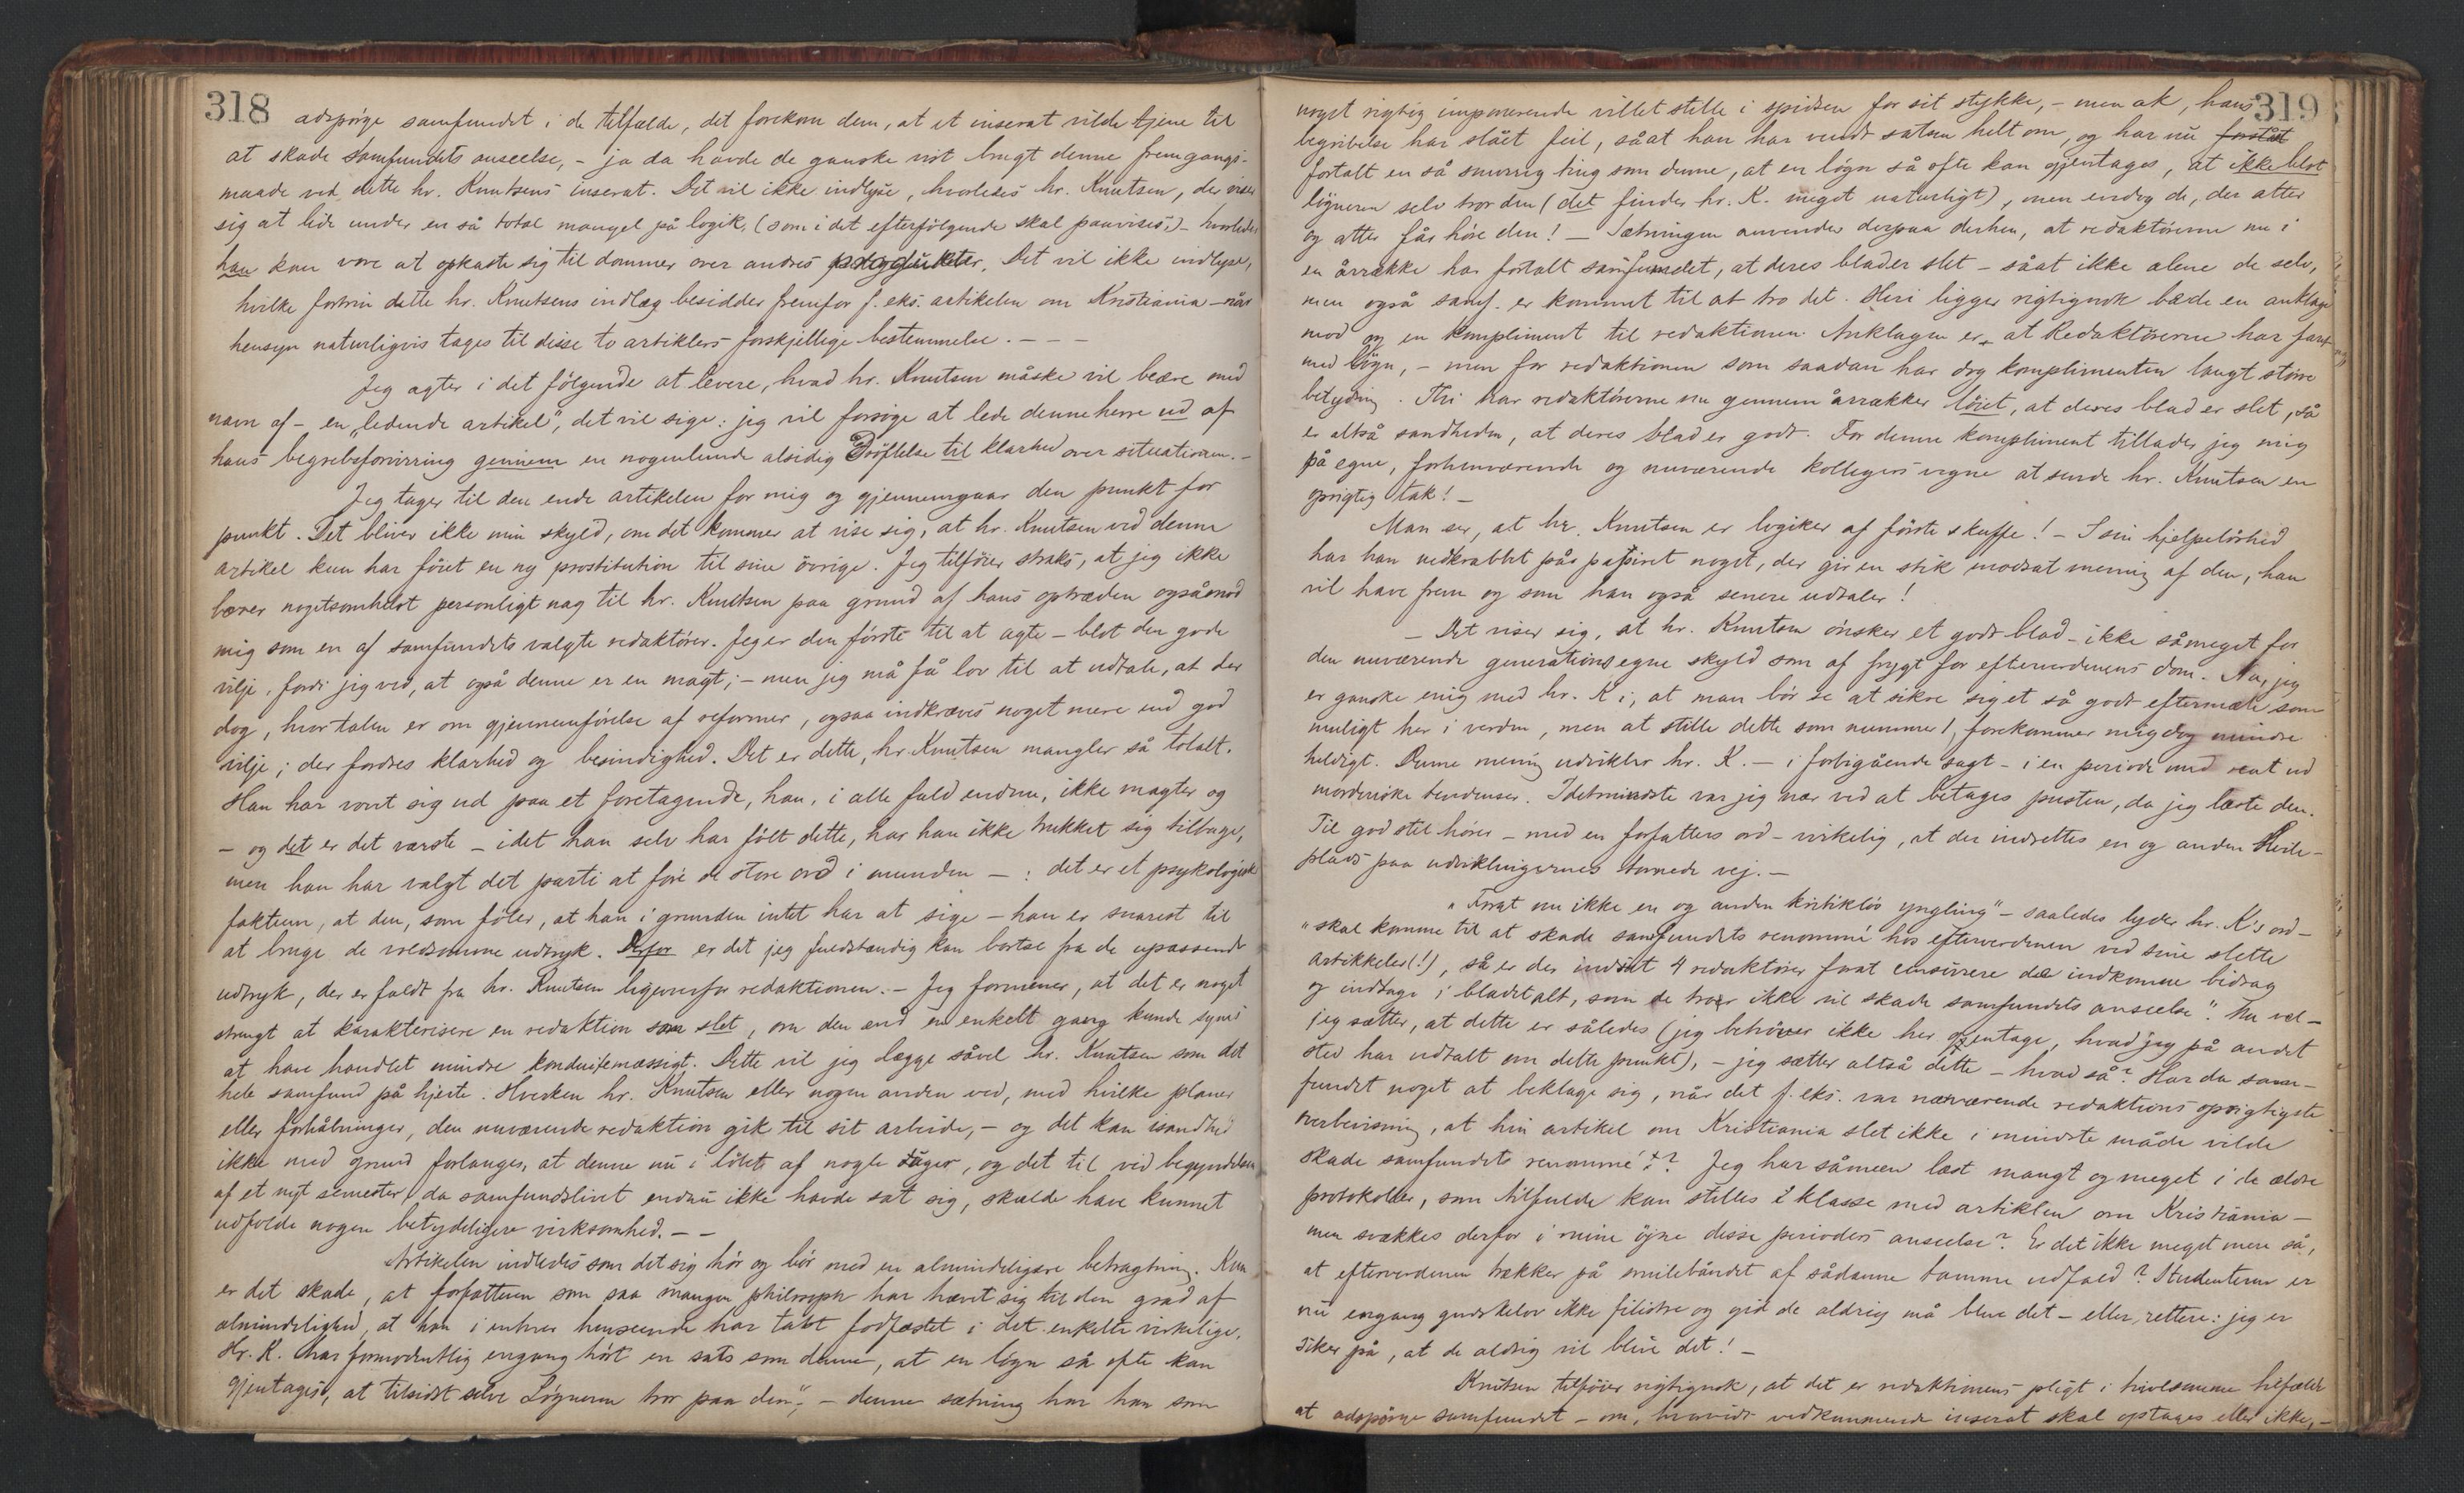 318
adspörge samfundet i de tilfælde, det forekom dem, at et inserat vilde tjene til
at skade samfundets anseelse, – ja da havde de ganske vist brugt denne fremgangs-
maade ved dette hr. Knutsens inserat. Det vil ikke indlyse, hvorledes hr. Knutsen, der viser
sig at lide under en så total mangel på logik, (som i det efterfölgende skal paavises,) – hvorledes
han kan vove at opkaste sig til dommer over andres produkter. Det vil ikke indlyse,
hvilke fortrin dette hr. Knutsens indlæg besidder fremfor f. eks. artikelen om Kristiania – når
hensyn naturligvis tages til disse to artiklers forskjellige bestemmelse. – – –
Jeg agter i det fölgende at levere, hvad hr. Knutsen måske vil beære med
navn af – en „ledende artikel", det vil sige: jeg vil forsöge at lede denne herre ud af
hans begrebsforvirring gennem en nogenlunde alsidig Dröftelse til klarhed over situationen. –
Jeg tager til den ende artikelen for mig og gjennemgaar den punkt for
punkt. Det bliver ikke min skyld, om det kommer at vise sig, at hr. Knutsen ved denne
artikel kun har föiet en ny prostitution til sine övrige. Jeg tilföier straks, at jeg ikke
bærer nogetsomhelst personligt nag til hr. Knutsen paa grund af hans optræden også mod
mig som en af samfundets valgte redaktörer. Jeg er den förste til at agte – blot den gode
vilje, fordi jeg ved, at også denne er en magt; – men jeg må få lov til at udtale, at der
dog, hvor talen er om gjennemförelse af reformer, ogsaa indkræves noget mere end god
vilje; der fordres klarhed og besindighed. Det er dette, hr. Knutsen mangler så totalt.
Han har vovet sig ud paa et foretagende, han, i alle fald endnu, ikke magter og
– og det er det værste – idet han selv har fölt dette, har han ikke trukket sig tilbage,
men han har valgt det parti at före de store ord i munden – : det er et psykologisk
faktum, at den, som föler, at han i grunden intet har at sige – han er snarest til
at bruge de voldsomme udtryk. Derfor er det jeg fuldstændig kan bortse fra de upassende
udtryk, der er faldt fra hr. Knutsen ligeoverfor redaktionen. – Jeg formener, at det er noget
strengt at karakterisere en redaktion som slet, om den end en enkelt gang kunde synes
at have handlet mindre konduitemæssigt. Dette vil jeg lægge såvel hr. Knutsen som det
hele samfund på hjerte. Hverken hr. Knutsen eller nogen anden ved, med hvilke planer
eller forhåbninger, den nuværende redaktion gik til sit arbeide, – og det kan isandhed
ikke med grund forlanges, at denne nu i löbet af nogle dager, og det til ved begyndelsen
af et nyt semester, da samfundslivet endnu ikke havde sat sig, skulde have kunnet
udfolde nogen betydeligere virksomhed. – –
Artikelen indledes som det sig hör og bör med en almindeligere betragtning. Kun
er det skade, at forfatteren som saa mangen philosoph har hævet sig til den grad af
almindelighed, at han i enhver henseende har tabt fodfæstet i det enkelte virkelige.
Hr. K. har formodentlig engang hört en sats som denne, at en lögn så ofte kan
gjentages, at tilsidst selve Lögneren tror paa den", – denne sætning har han som
319
noget rigtig imponerende villet stille i spidsen for sit stykke, – men ak, hans
begribelse har slået feil, såat han har vendt satsen helt om, og har nu forstået
fortalt en så snurrig ting som denne, at en lögn så ofte kan gjentages, at ikke blot
lögneren selv tror den (det finder hr. K. meget naturligt), men endog de, der atter
og atter får höre den! – Sætningen anvendes derpaa derhen, at redaktörerne nu i
en årrække har fortalt samfundet, at deres blad er slet – såat ikke alene de selv,
men også samf. er kommet til at tro det. Heri ligger rigtignok både en anklage
mod og en kompliment til redaktionen. Anklagen er, at Redaktörerne har faret
med lögn, – men for redaktionen som saadan har dog komplimenten langt större
betydning. Thi har redaktörerne nu gennem årrækker löiet, at deres blad er slet, så
er altså sandheden, at deres blad er godt. For denne kompliment tillader jeg mig
på egne, forhenværende og nuværende kollegers vegne at sende hr. Knutsen en
oprigtig tak! –
Man ser, at hr. Knutsen er logiker af förste skuffe! – I sin hjelpelöshed
har han nedkrablet på papiret noget, der gir en stik modsat mening af den, han
vil have frem og som han også senere udtaler!
– Det viser sig, at hr. Knutsen önsker et godt blad – ikke såmeget for
den nuværende generations egne skyld som af frygt for efterverdenens dom. Na, jeg
er ganske enig med hr. K i, at man bör se at sikre sig et så godt eftermæle som
muligt her i verden, men at stille dette som nummer 1, forekommer mig dog mindre
heldigt. Denne mening udvikler hr. K. – i forbigående sagt – i en periode med rent ud
morderiske tendenser. Idetmindste var jeg nær ved at betages pusten, da jeg læste den.
Til god stil hörer – med en forfatters ord – virkelig, at der indrettes en og anden Hvile-
plads paa udviklingernes tornede vej. –
„Forat nu ikke en og anden kritiklös yngling" – saaledes lyder hr. K's ord –
„skal komme til at skade samfundets renommé hos efterverdenen ved sine slette
artikkeler(!), så er der indsat 4 redaktörer forat censurere de indkomne bidrag
og indtage i bladet alt, som de tror ikke vil skade samfundets anseelse". Nu vel –
jeg sætter, at dette er således (jeg behöver ikke her gjentage, hvad jeg på andet
sted har udtalt om dette punkt), – jeg sætter altså dette – hvad så? Har da sam-
fundet noget at beklage sig, når det f. eks. var nærværende redaktions oprigtigste
overbevisning, at hin artikel om Kristiania slet ikke i mindste måde vilde
skade samfundets renommé!? Jeg har såmæn læst mangt og meget i de ældre
protokoller, som tilfulde kan stilles i klasse med artiklen om Kristiania –
men svækkes derfor i mine öjne disse perioders anseelse? Er det ikke meget mere så,
at efterverdenen trækker på smilebåndet af sådanne tamme udfald? Studenterne er
nu engang gudskelov ikke filistre og gid de aldrig må blive det – eller, rettere: jeg er
siker på, at de aldrig vil blive det! –
Knutsen tilföier rigtignok, at det er redaktionens pligt i tvivlsomme tilfælde
at adspörge samfundet – om, hvorvidt vedkommende inserat skal optages eller ikke, –